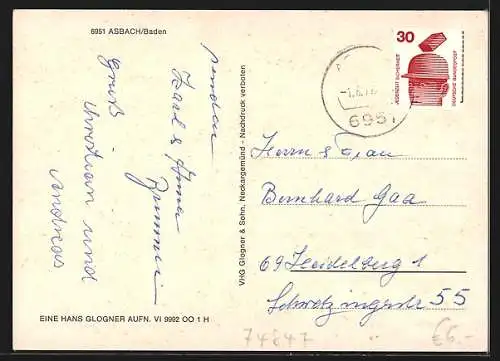 6951 ASBACH/Baden
senden
Karl & Irma
Gruß
Christian und
Andreas
VHG Glogner & Sohn, Neckargemünd - Nachdruck verboten
EINE HANS GLOGNER AUFN. VI 9992 OO 1 H
30
JEDERZEIT SICHERHEIT
DEUTSCHE BUNDESPOST
6951
Herrn & Frau
Bernhard Gaa
69 Heidelberg 1
Schwetzingerstr 55
74847
€6.-